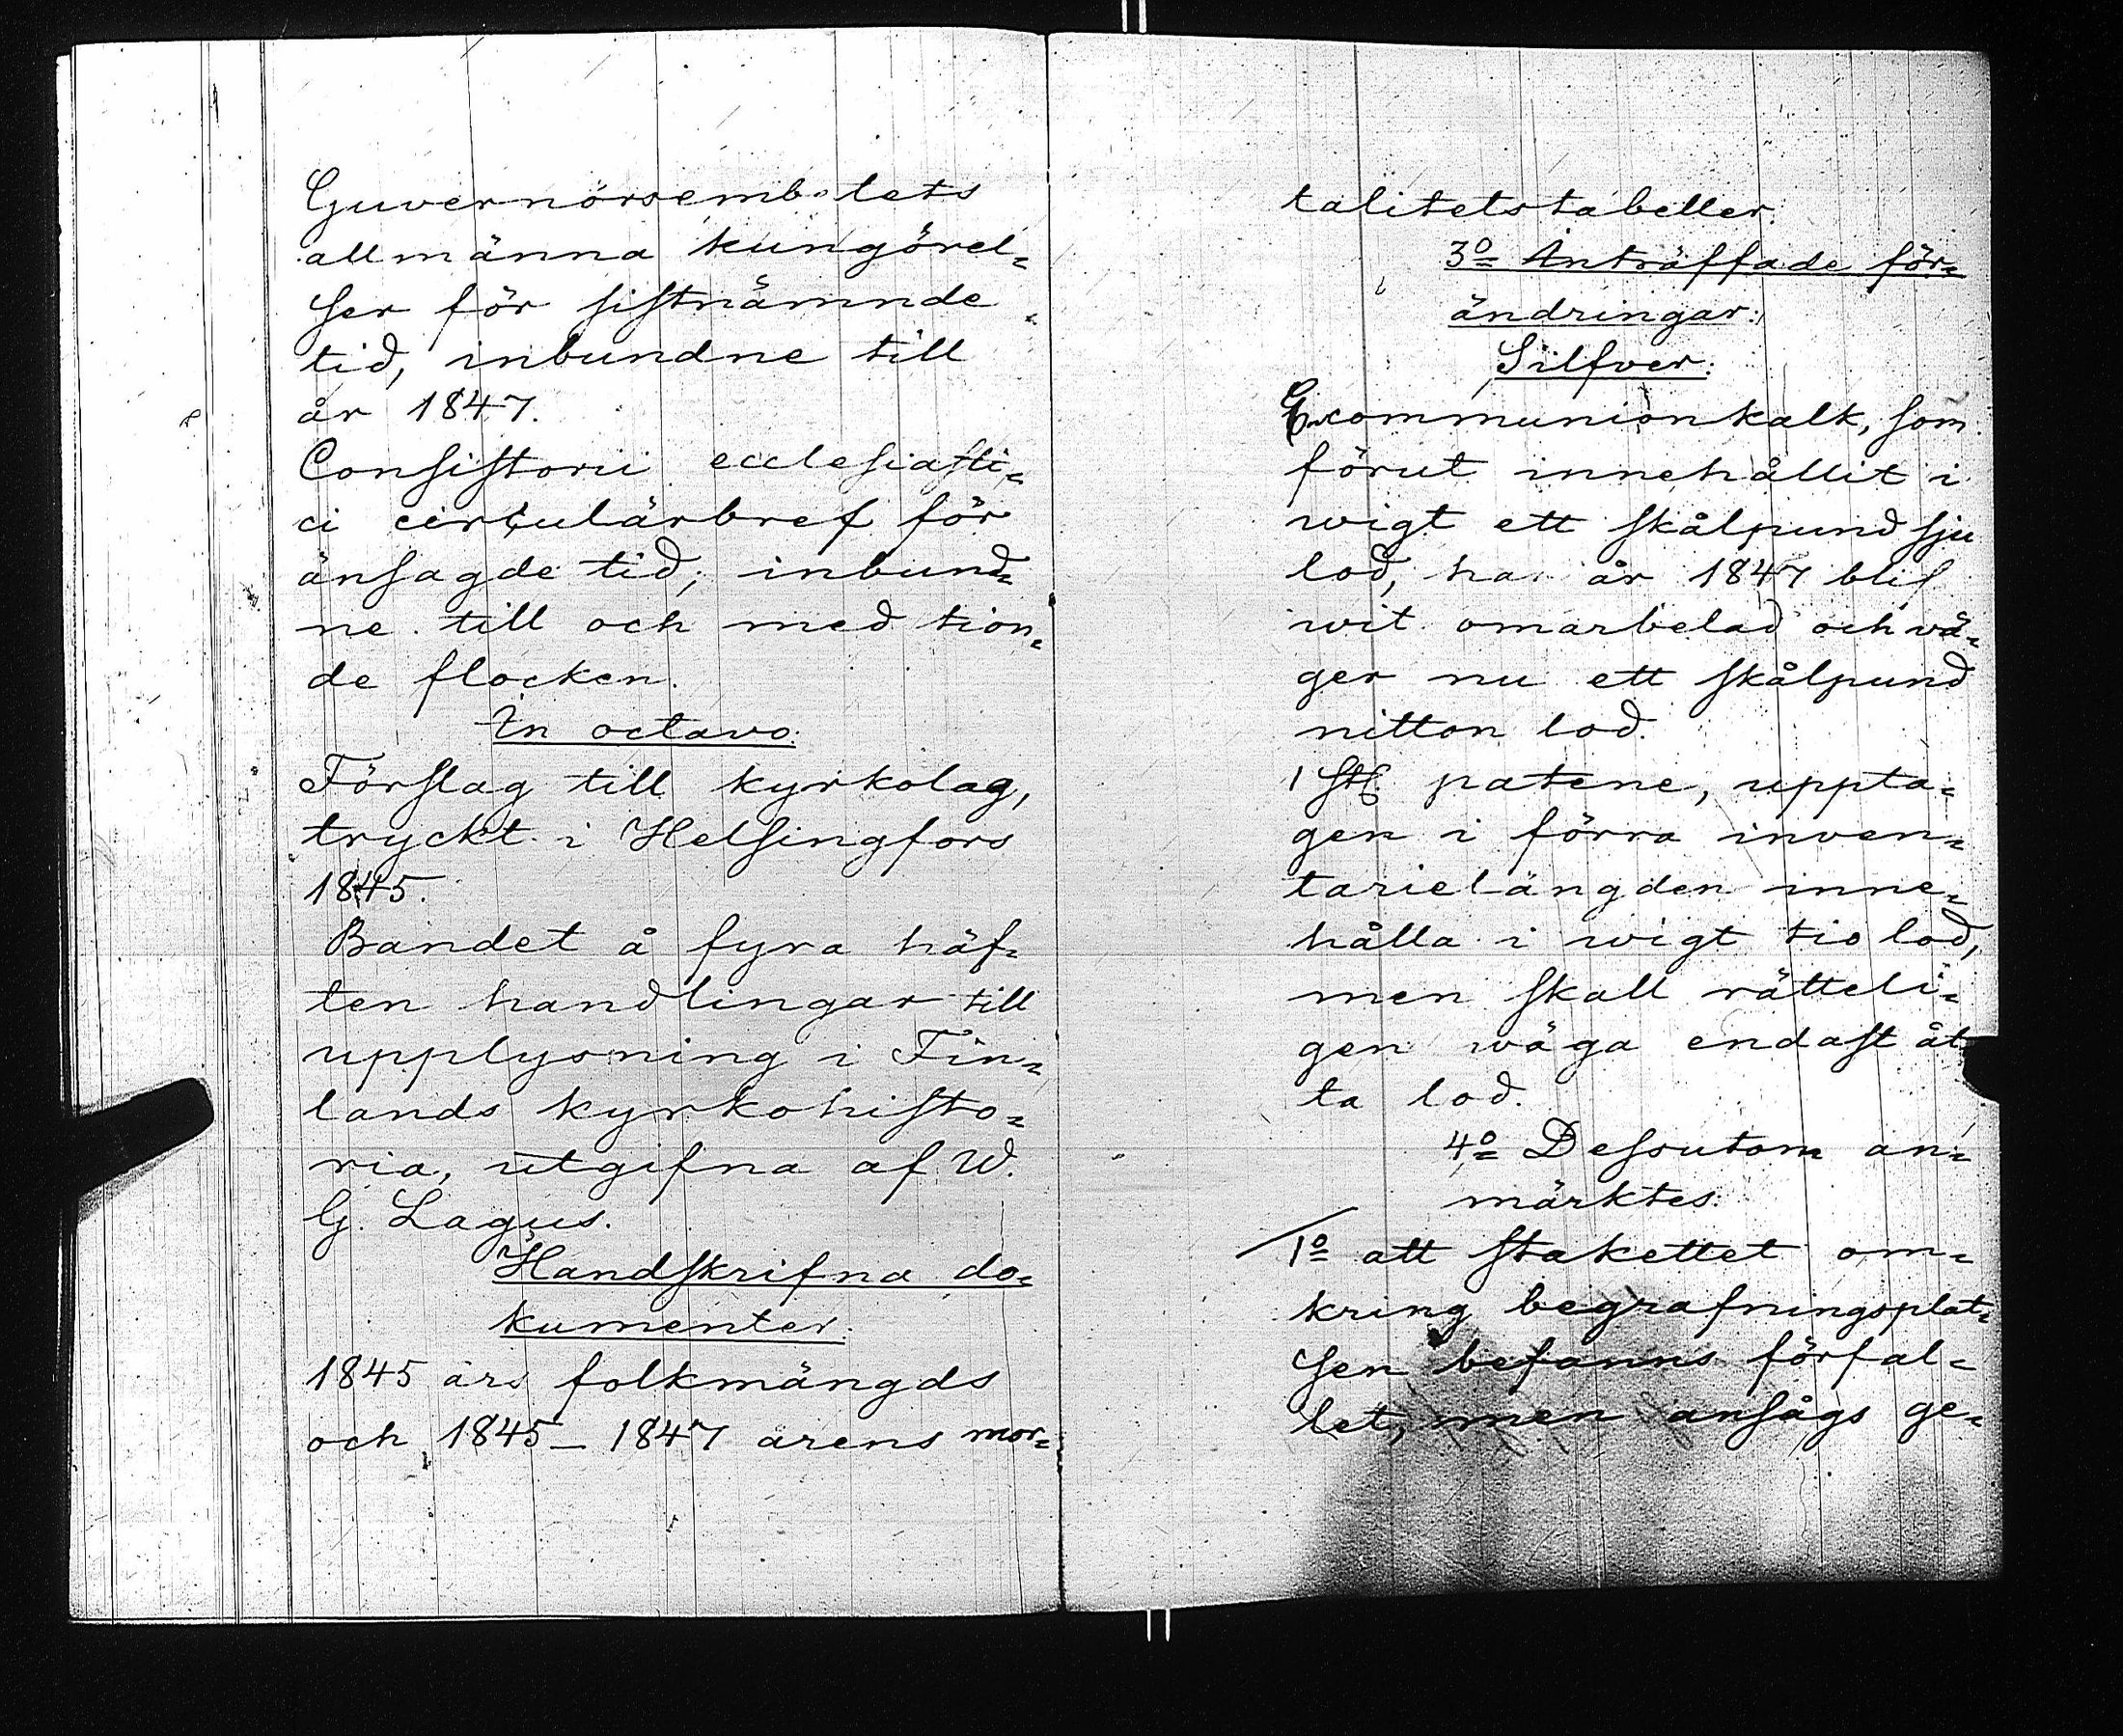 Guvernörsembetets
allmänna kungörel=
ser för sistnämnde
tid, inbundne till
år 1847.
Consistorii ecclesiasti=
ci cirkulärbref för
änsagde tid; inbund=
ne till och med tion=
de flocken.
In octavo.
Förslag till kyrkolag,
tryckt i Helsingfors
1845.
Bandet å fyra häf=
ten handlingar till
upplysning i Fin=
lands kyrkohisto=
ria, utgifna af W.
G. Lagus.
Handskrifna do=
kumenter.
1845 års folkmängds
och 1845–1847 årens mor=
talitetstabeller.
3º Anträffade för=
ändringar:
Silfver.
En communionkalk, som
förut innehållit i
wigt ett skålpund sju
lod, har år 1847 blif
wit omarbetad och vä=
ger nu ett skålpund
nitton lod.
1 st. patene, uppta=
gen i förra inven=
tarielängden inne=
hålla i wigt tio lod,
men skall rätteli=
gen wäga endast åt
ta lod.
4º Dessutom an=
märktes.
1º att stakettet om=
kring begrafningsplat=
sen befanns förfal=
let, men ansågs ge=